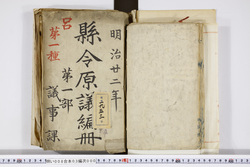 明治廿二年
縣令原議編册
第一部
議事課
呂
第一種